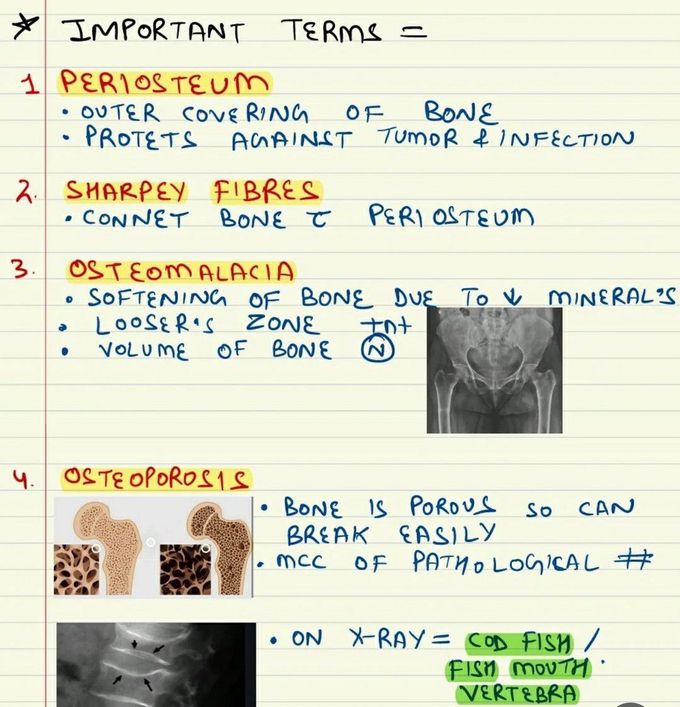 * IMPORTANT TERMS =
1 PERIOSTEUM
• OUTER COVERING OF BONE
• PROTETS AGAINST TUMOR & INFECTION
2. SHARPEY FIBRES
• CONNET BONE c̄ PERIOSTEUM
3. OSTEOMALACIA
• SOFTENING OF BONE DUE TO ↓ MINERAL'S
• LOOSER'S ZONE +nt
• VOLUME OF BONE Ⓝ
4. OSTEOPOROSIS
• BONE IS POROUS SO CAN
BREAK EASILY
• MCC OF PATHOLOGICAL #
• ON X-RAY = COD FISH /
FISH MOUTH
VERTEBRA